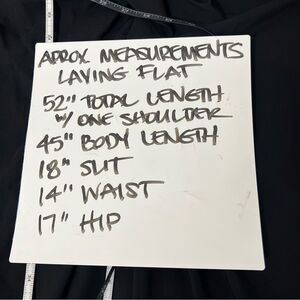 APROX MEASUREMENTS
LAYING FLAT
52" TOTAL LENGTH
w/ ONE SHOULDER
45" BODY LENGTH
18" SLIT
14" WAIST
17" HIP